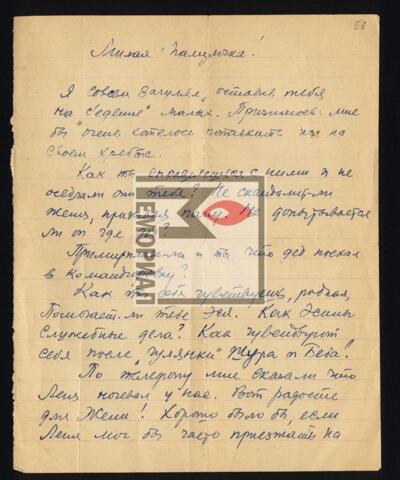 56
Милая Мамулочка!
Я совсем загулял, оставив тебя
на "съедение" малых. Признаюсь: мне
бы очень хотелось потаскать их на
своем хребте.
Как ты справляешься с ними и не
оседлали они тебя? Не скандалит ли
Женя, приходя папу. Не допытывается
ли он где
МЕМОРИАЛ
Примирился ли и ты что дед поехал
в командировку?
Как ты себя чувствуешь, родная,
Помогает-ли тебе Эся. Как Эсины
служебные дела? Как чувствуют
себя после "гулянки" Шура и Беба?
По телефону мне сказали что
Леня ночевал у нас. Вот радость
для Жени! Хорошо было бы, если
Леня мог бы часто приезжать на